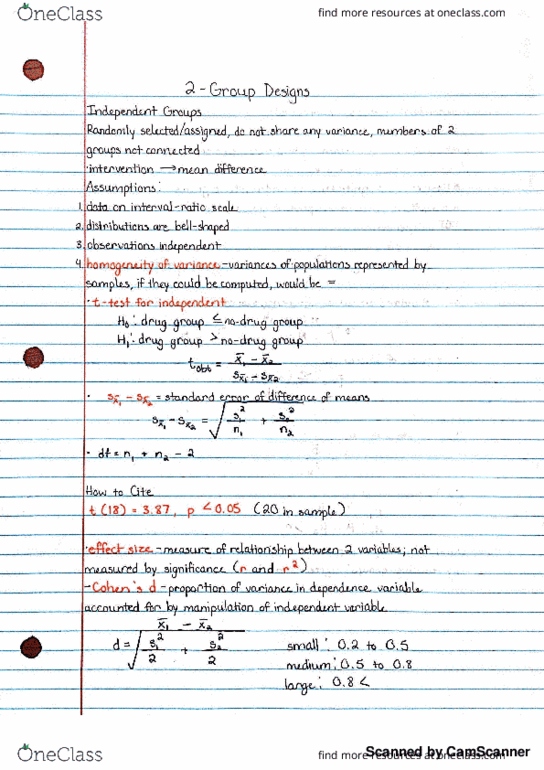 OneClass
find more resources at oneclass.com
2-Group Designs
Independent Groups
Randomly selected/assigned, do not share any variance, numbers of 2
groups not connected
·intervention → mean difference
Assumptions:
1. data on interval-ratio scale
2. distributions are bell-shaped
3. observations independent
4. homogeneity of variance - variances of populations represented by
samples, if they could be computed, would be =
· t-test for independent
H₀: drug group ≤ no-drug group
H₁: drug group > no-drug group
t_obt = (x̄₁ - x̄₂) / (s_x̄₁ - s_x̄₂)
· s_x̄₁ - s_x̄₂ = standard error of difference of means
s_x̄₁ - s_x̄₂ = √(s₁²/n₁ + s₂²/n₂)
· df = n₁ + n₂ - 2
How to Cite
t (18) = 3.87, p < 0.05 (20 in sample)
·effect size - measure of relationship between 2 variables; not
measured by significance (r and r²)
-Cohen's d - proportion of variance in dependence variable
accounted for by manipulation of independent variable
d = (x̄₁ - x̄₂) / √(s₁²/2 + s₂²/2)
small: 0.2 to 0.5
medium: 0.5 to 0.8
large: 0.8 <
OneClass
find more resources at oneclass.com
Scanned by CamScanner